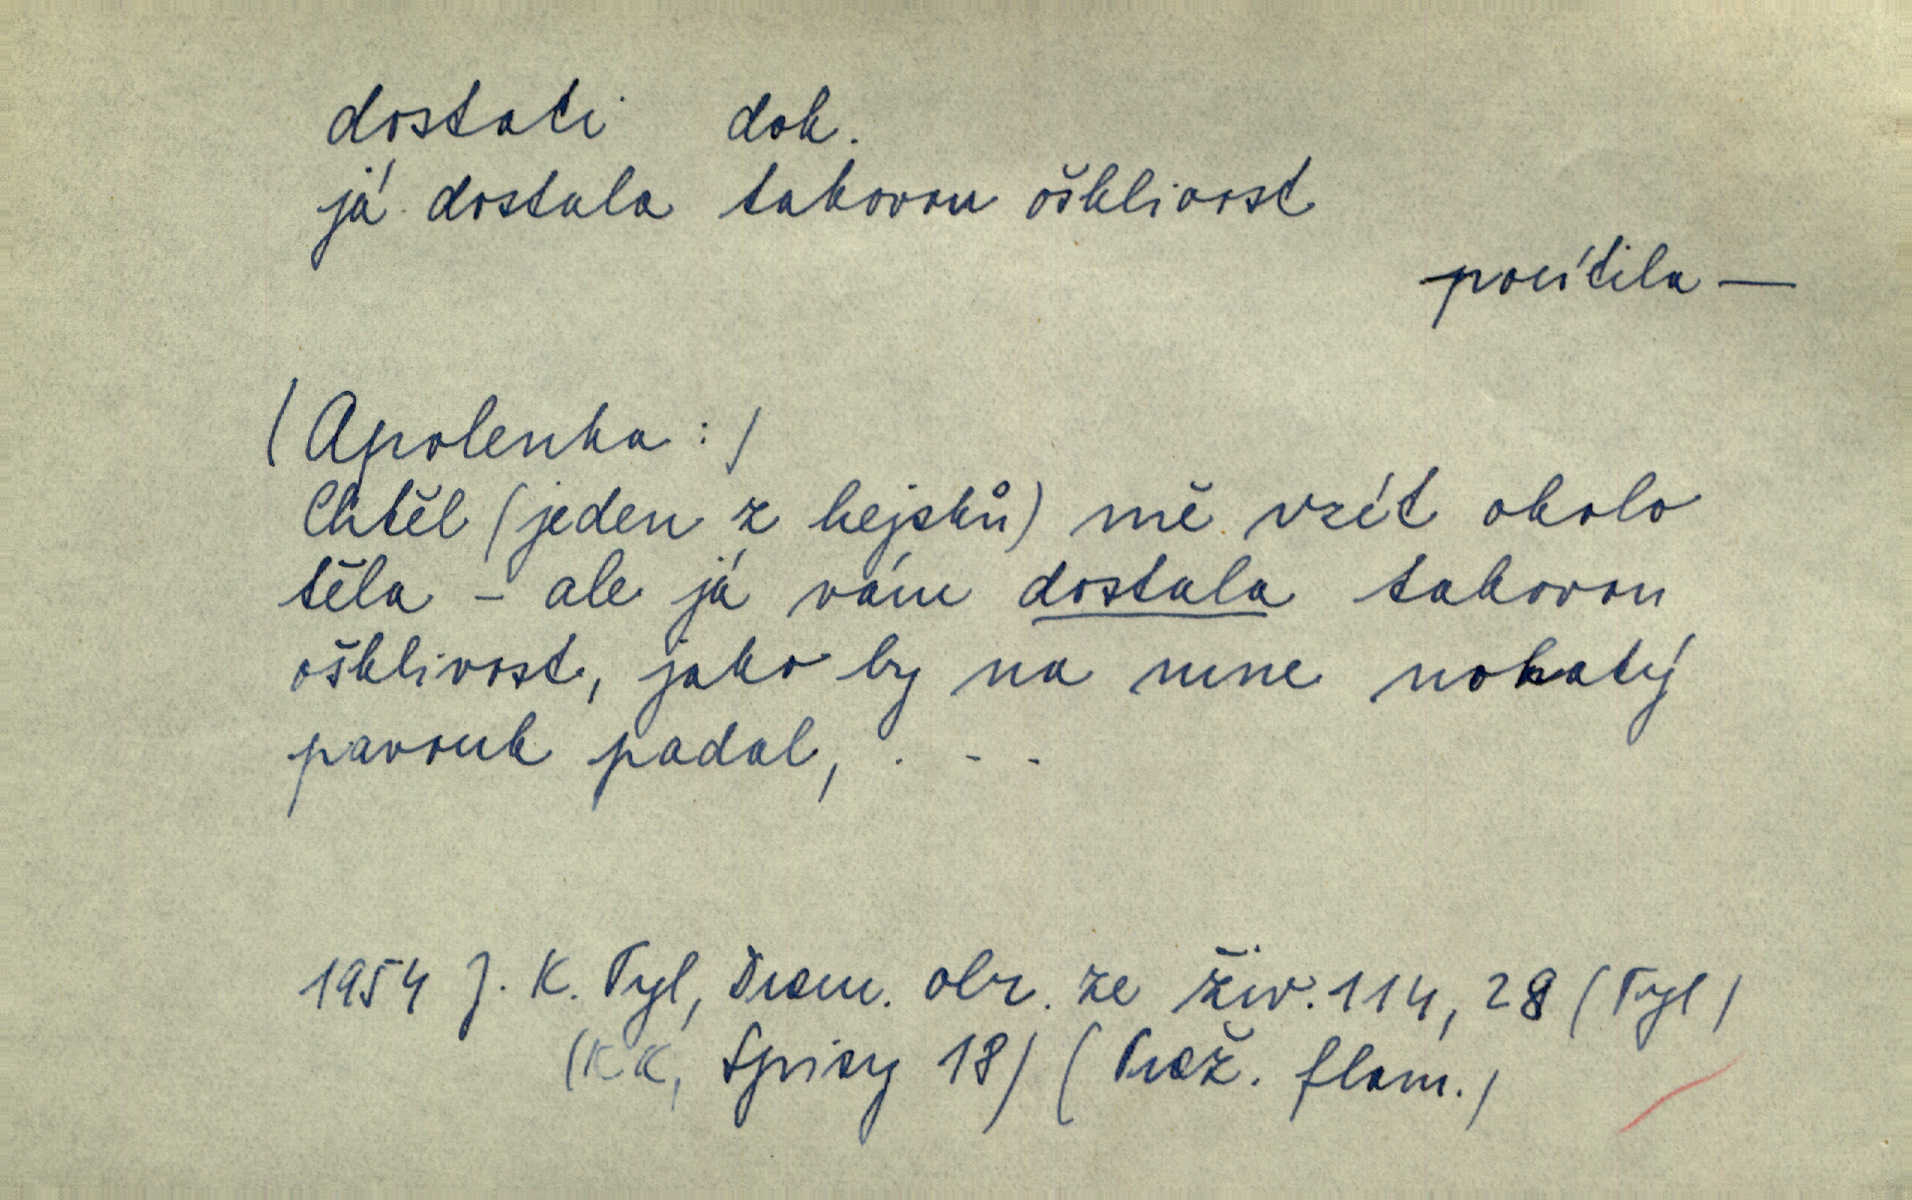 dostati dok.
já dostala takovou ošklivost
pocítila —
(Apolenka:)
Chtěl (jeden z hejsků) mě vzít okolo
těla - ale já vám dostala takovou
ošklivost, jako by na mne nohatý
pavouk padal, . - -
1954 J. K. Tyl, Dram. obr. ze živ. 114, 28 (Tyl)
(KK, Spisy 18) (Praž. flam.)